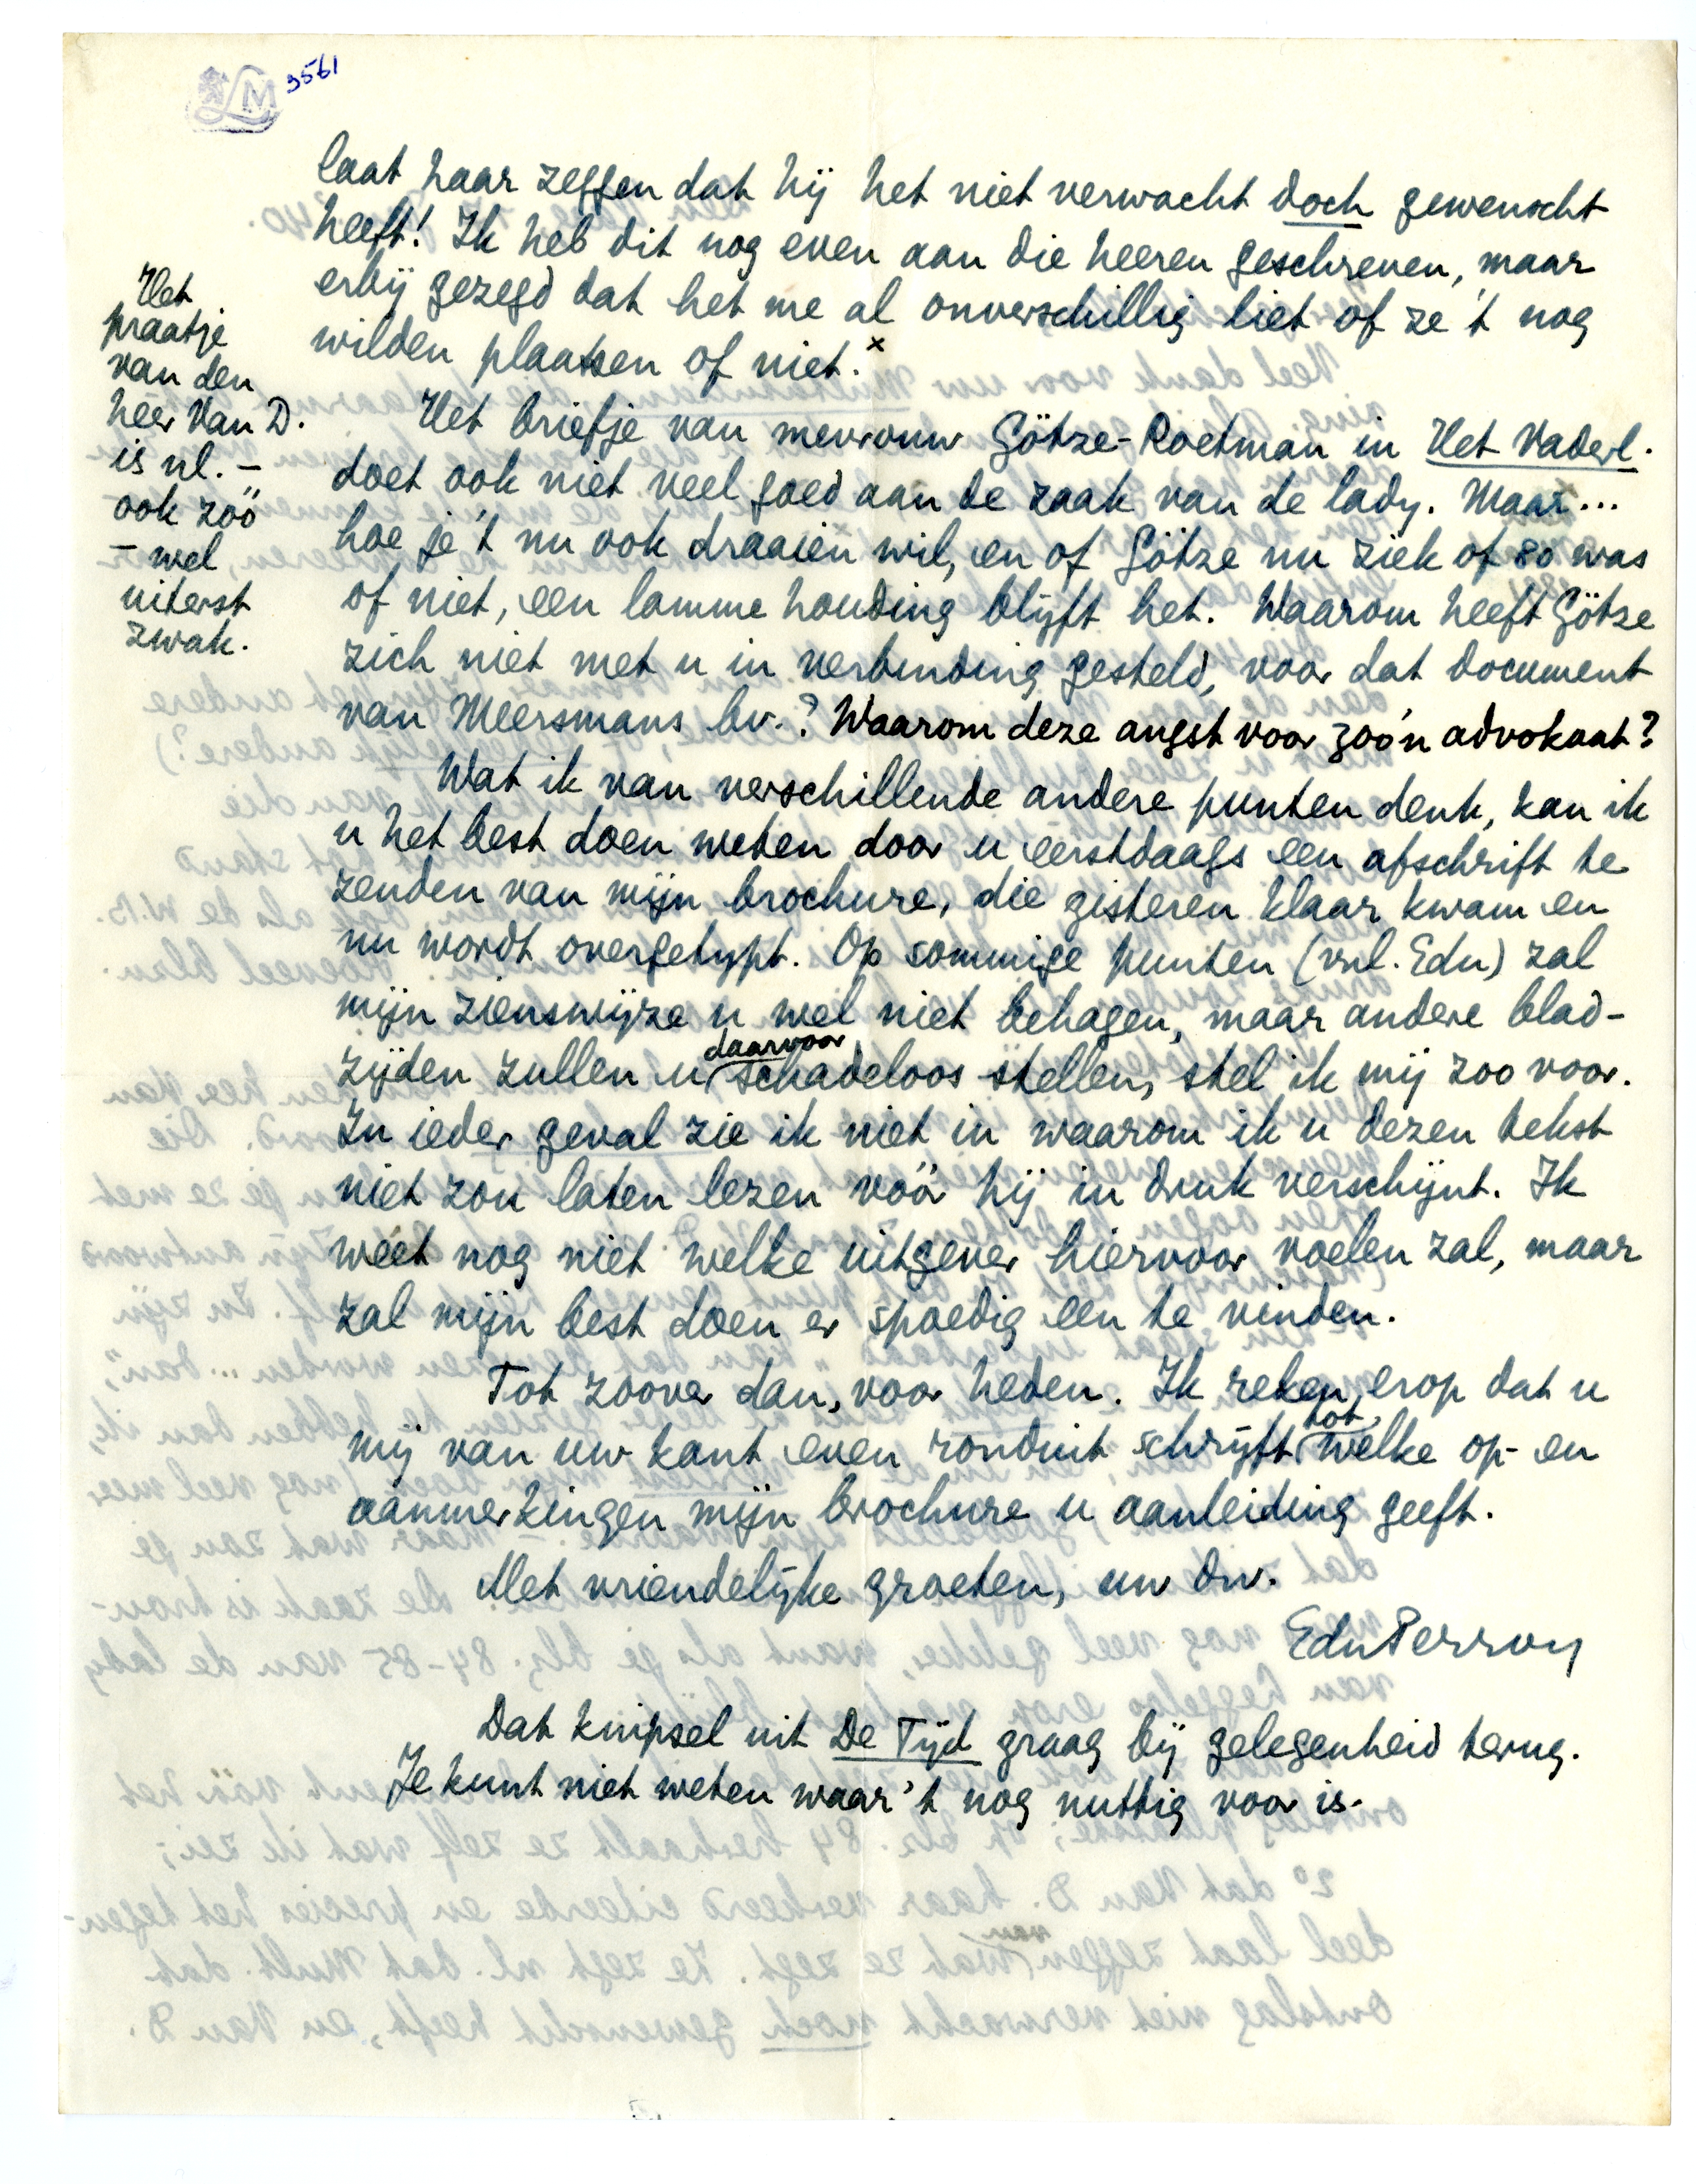 LM
3561
laat haar zeggen dat hij het niet verwacht doch gewenscht
heeft! Ik heb dit nog even aan die heeren geschreven, maar
erbij gezegd dat het me al onverschillig liet of ze 't nog
wilden plaatsen of niet.x
Het
praatje
van den
heer Van D.
is nl. –
ook zóó
– wel
uiterst
zwak.
Het briefje van mevrouw Götze-Roetman in Het Vaderl.
doet ook niet veel goed aan de zaak van de lady. Maar...
hoe je 't nu ook draaien wil, en of Götze nu ziek of 80 was
of niet, een lamme houding blijft het. Waarom heeft Götze
zich niet met u in verbinding gesteld, voor dat document
van Meersmans bv.? Waarom deze angst voor zoo'n advokaat?
Wat ik van verschillende andere punten denk, kan ik
u het best doen weten door u eerstdaags een afschrift te
zenden van mijn brochure, die gisteren klaar kwam en
nu wordt overgetypt. Op sommige punten (vnl. Edu) zal
mijn zienswijze u wel niet behagen, maar andere blad-
zijden zullen u daarvoor schadeloos stellen, stel ik mij zoo voor.
In ieder geval zie ik niet in waarom ik u dezen tekst
niet zou laten lezen vóór hij in druk verschijnt. Ik
weet nog niet welke uitgever hiervoor voelen zal, maar
zal mijn best doen er spoedig een te vinden.
Tot zoover dan, voor heden. Ik reken erop dat u
mij van uw kant even ronduit schrijft tot welke op- en
aanmerkingen mijn brochure u aanleiding geeft.
Met vriendelijke groeten, uw dw.
EduPerron
Dat knipsel uit De Tijd graag bij gelegenheid terug.
Je kunt niet weten waar 't nog nuttig voor is.